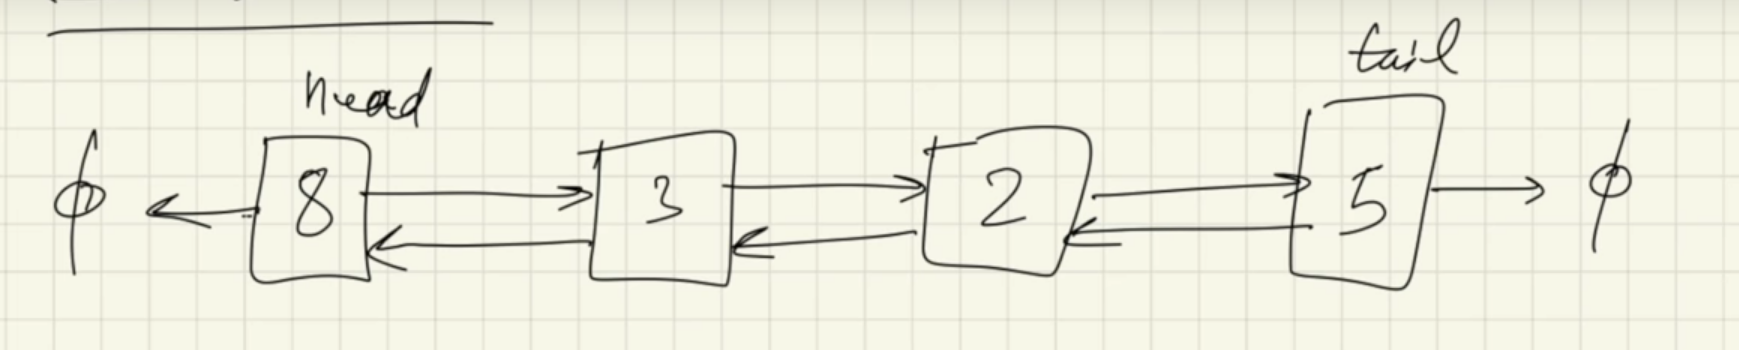 head
tail
ϕ 8 3 2 5 ϕ